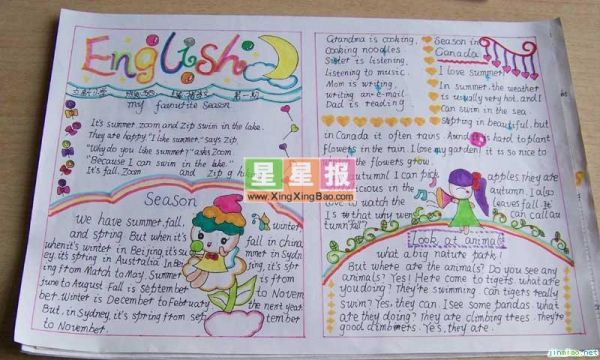 English
my favourite Season
It's summer. Zoom and Zip swim in the lake.
They are happy. "I like summer," says Zip
"Why do you like summer?" asks Zoom
"Because I can swim in the lake."
It's fall. Zoom and Zip g
Season
We have summer, fall, winter
and spring. But when it's fall in China
when it's winter in Beijing it's summer in Sydn
ey. it's spring in Australia. In Be it's spr
ing from March to May. Summer is from
June to August Fall is September to Novem
ber. Winter is December to February the next year.
But, in Sydney, it's spring from September
to November.
Grandma is cooking.
cooking noodles
Sister is listening.
listening to music.
Mom is writing
writing an e-mail.
Dad is reading
Season in
Canada
I love summer
In summer, the weather
is usually very hot, and I
can swim in the sea.
Spring is beautiful, but
in Canada it often rains. Aun is hard to plant
flowers in the rain. I love my garden it is so nice to
the flowers grow.
autumn! I can pick apples they are
icious in the autumn. I also
love to watch the leaves fall.
Is that why we can call au
tumn "fall"?
Look at animals
what a big nature park!
But where are the animals? Do you see any
animals? Yes! Here come to tigers. what are
you doing? They're swimming Can tigers really
swim? Yes, they can. I see some pandas. what
are they doing? They are climbing trees. They're
good climbers. Yes, they are.
星星报
www.XingXingBao.com
jinmiao.net